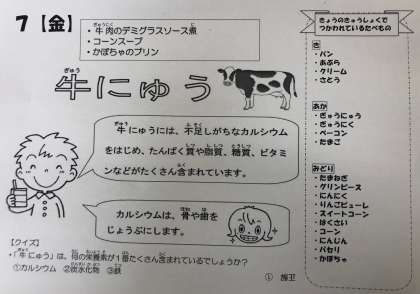 7【金】
・牛肉のデミグラスソース煮
・コーンスープ
・かぼちゃのプリン
牛にゅう
牛にゅうには、不足しがちなカルシウム
をはじめ、たんぱく質や脂質、糖質、ビタミ
ンなどがたくさん含まれています。
カルシウムは、骨や歯を
じょうぶにします。
【クイズ】
・「牛にゅう」は、何の栄養素が1番たくさん含まれているでしょうか?
①カルシウム ②炭水化物 ③鉄
きょうのきゅうしょくで
つかわれているたべもの
き
・パン
・あぶら
・クリーム
・さとう
あか
・ぎゅうにゅう
・ぎゅうにく
・ベーコン
・たまご
みどり
・たまねぎ
・グリンピース
・にんにく
・りんごピューレ
・スイートコーン
・はくさい
・コーン
・にんじん
・パセリ
・かぼちゃ